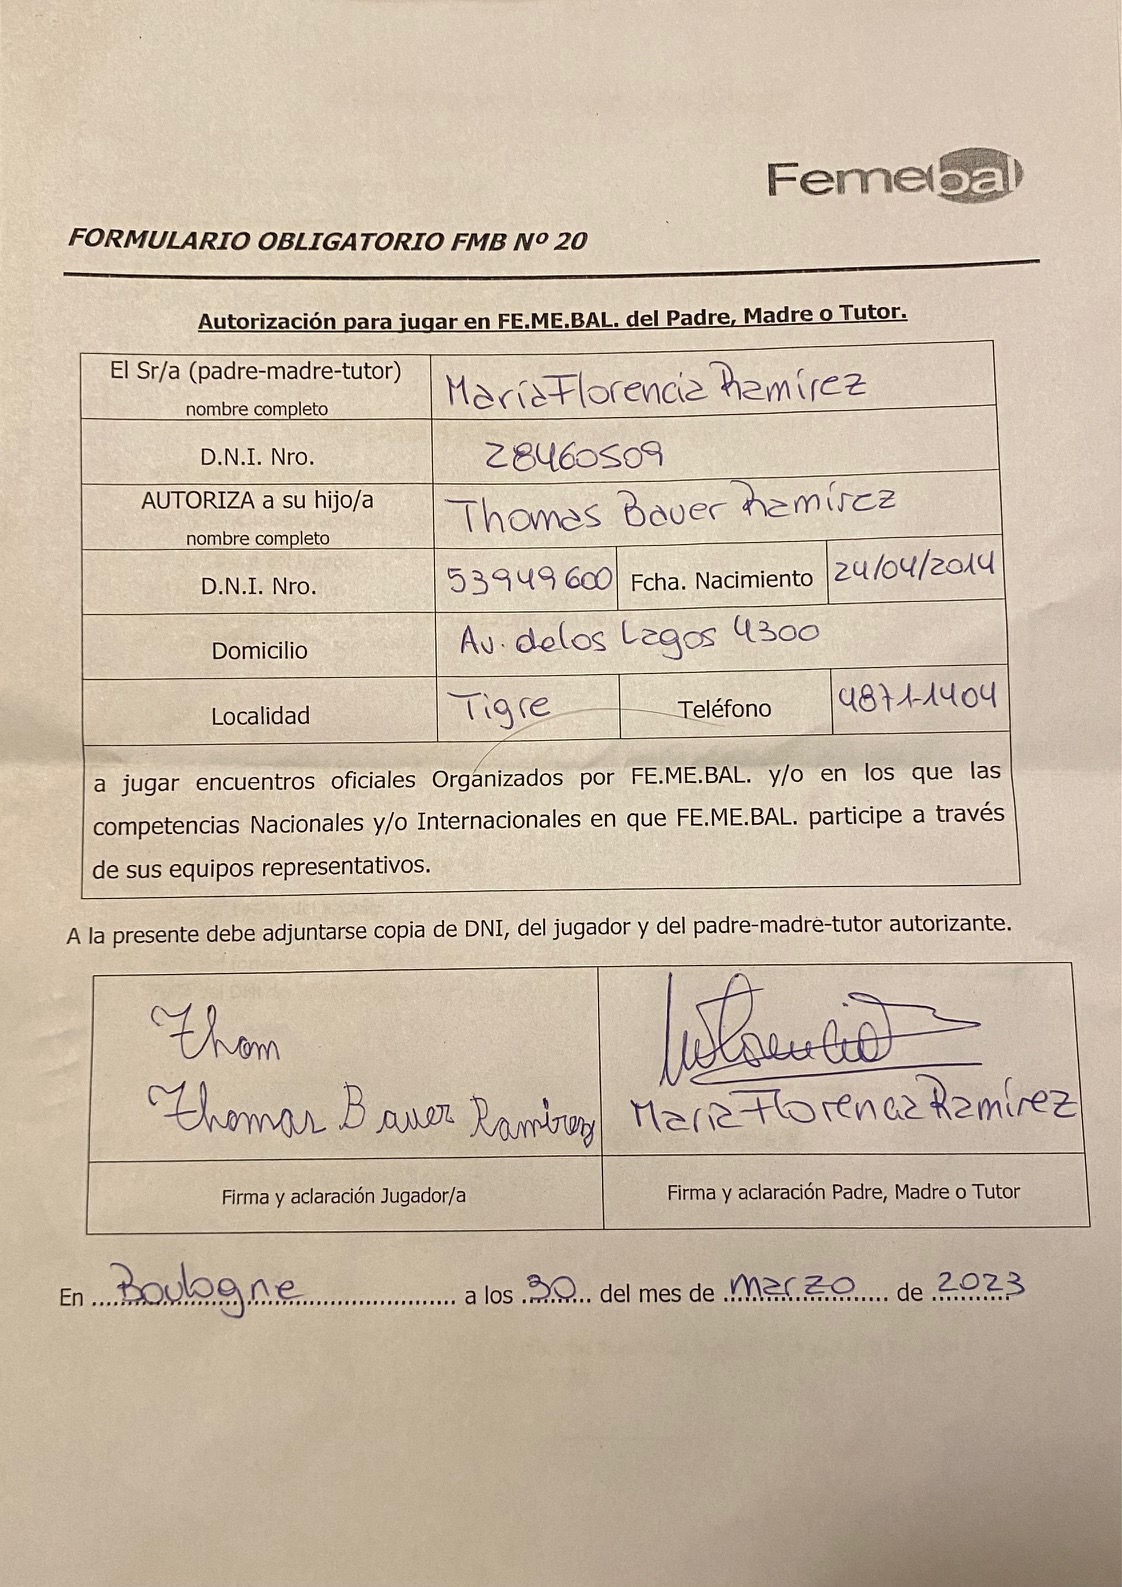 Femebal
FORMULARIO OBLIGATORIO FMB Nº 20
Autorización para jugar en FE.ME.BAL. del Padre, Madre o Tutor.
El Sr/a (padre-madre-tutor)
nombre completo
María Florencia Ramírez
D.N.I. Nro.
28460509
AUTORIZA a su hijo/a
nombre completo
Thomas Bauer Ramírez
D.N.I. Nro.
53949600
Fcha. Nacimiento
24/04/2014
Domicilio
Av. de los Lagos 4300
Localidad
Tigre
Teléfono
4871-1404
a jugar encuentros oficiales Organizados por FE.ME.BAL. y/o en los que las
competencias Nacionales y/o Internacionales en que FE.ME.BAL. participe a través
de sus equipos representativos.
A la presente debe adjuntarse copia de DNI, del jugador y del padre-madre-tutor autorizante.
Thom
Thomas Bauer Ramirez
María Florencia Ramírez
Firma y aclaración Jugador/a
Firma y aclaración Padre, Madre o Tutor
En Boulogne a los 30 del mes de marzo de 2023